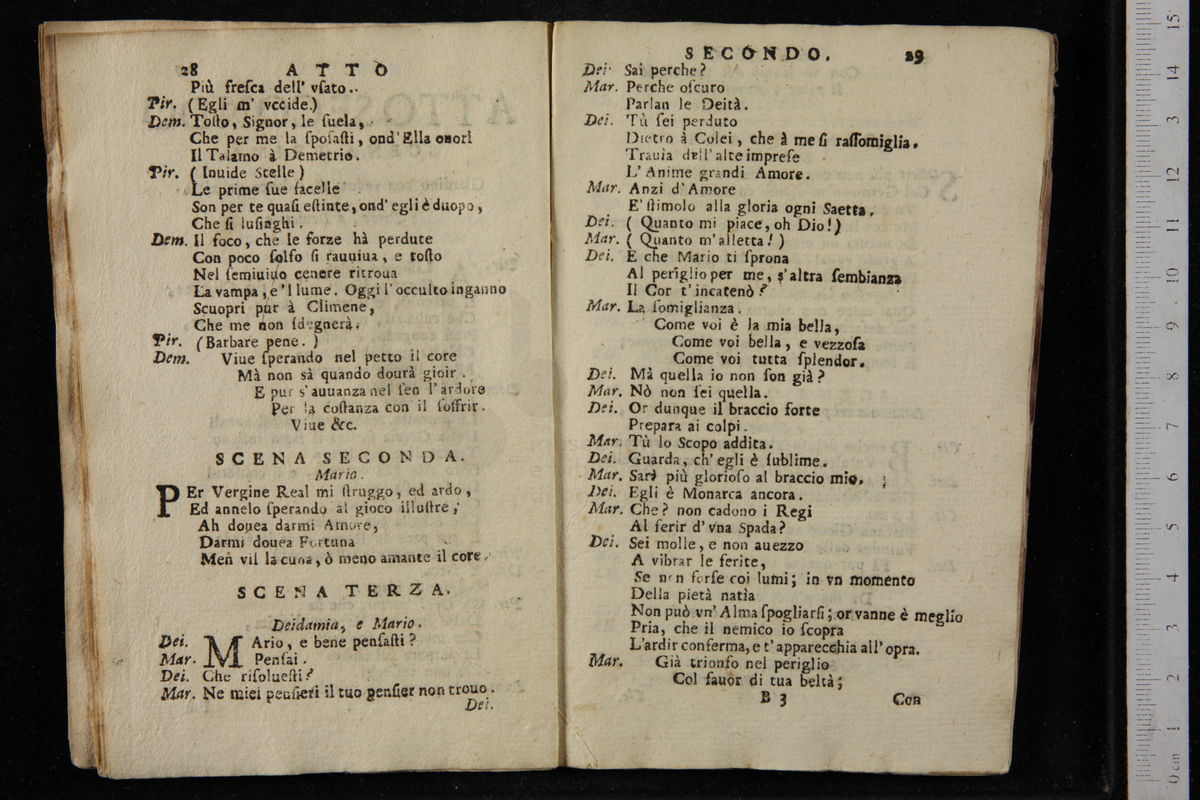 28 ATTO
Più freſca dell' vſato..
Pir. (Egli m' vccide.)
Dem. Toſto, Signor, le ſuela,
Che per me la ſpoſaſti, ond' Ella onori
Il Talamo à Demetrio.
Pir. (Inuide Stelle)
Le prime ſue facelle
Son per te quaſi eſtinte, ond' egli è duopo,
Che ſi luſinghi.
Dem. Il foco, che le forze hà perdute
Con poco ſolfo ſi rauuiua, e toſto
Nel ſemiuiuo cenere ritroua
La vampa, e 'l lume. Oggi l' occulto inganno
Scuopri pur à Climene,
Che me non ſdegnerà.
Pir. (Barbare pene.)
Dem. Viue ſperando nel petto il core
Mà non sà quando dourà gioir.
E pur s' auuanza nel ſen l' ardore
Per la coſtanza con il ſoffrir.
Viue &c.
SCENA SECONDA.
Mario.
PEr Vergine Real mi ſtruggo, ed ardo,
Ed annelo ſperando al gioco illuſtre,
Ah douea darmi Amore,
Darmi douea Fortuna
Men vil la cuna, ò meno amante il core.
SCENA TERZA.
Deidamia, e Mario.
Dei. MArio, e bene penſaſti?
Mar. Penſai.
Dei. Che riſolueſti?
Mar. Ne miei penſieri il tuo penſier non trouo.
Dei.
SECONDO. 29
Dei. Sai perche?
Mar. Perche oſcuro
Parlan le Deità.
Dei. Tù ſei perduto
Dietro à Colei, che à me ſi raſſomiglia.
Trauia dell' alte impreſe
L' Anime grandi Amore.
Mar. Anzi d' Amore
E' ſtimolo alla gloria ogni Saetta.
Dei. ( Quanto mi piace, oh Dio!)
Mar. ( Quanto m' alletta! )
Dei. E che Mario ti ſprona
Al periglio per me, s' altra ſembianza
Il Cor t' incatenò?
Mar. La ſomiglianza.
Come voi è la mia bella,
Come voi bella, e vezzoſa
Come voi tutta ſplendor.
Dei. Mà quella io non ſon già?
Mar. Nò non ſei quella.
Dei. Or dunque il braccio forte
Prepara ai colpi.
Mar. Tù lo Scopo addita.
Dei. Guarda, ch' egli è ſublime.
Mar. Sarà più glorioſo al braccio mio.
Dei. Egli è Monarca ancora.
Mar. Che? non cadono i Regi
Al ferir d' vna Spada?
Dei. Sei molle, e non auezzo
A vibrar le ferite,
Se non forſe coi lumi; in vn momento
Della pietà natìa
Non può vn' Alma ſpogliarſi; or vanne è meglio
Pria, che il nemico io ſcopra
L'ardir conferma, e t' apparecchia all' opra.
Mar. Già trionfo nel periglio
Col fauor di tua beltà;
B 3 Con
15
14
13
12
11
10
9
8
7
6
5
4
3
2
1
0 cm